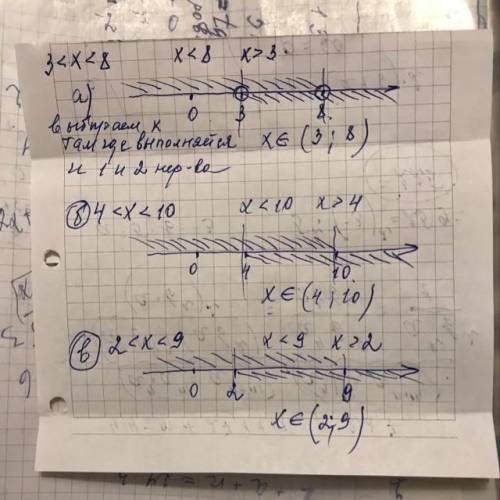 3<x<8 x<8 x>3
а)
0 3 8
x∈(3; 8)
там где выполняется
и 1 и 2 нер-ва
б) 4<x<10 x<10 x>4
0 4 10
x∈(4; 10)
в) 2<x<9 x<9 x>2
0 2 9
x∈(2; 9)